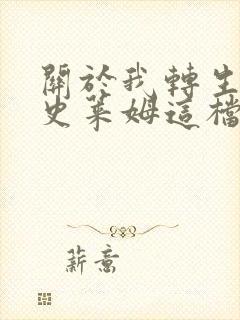 關於我轉生
史萊姆這檔
薪意